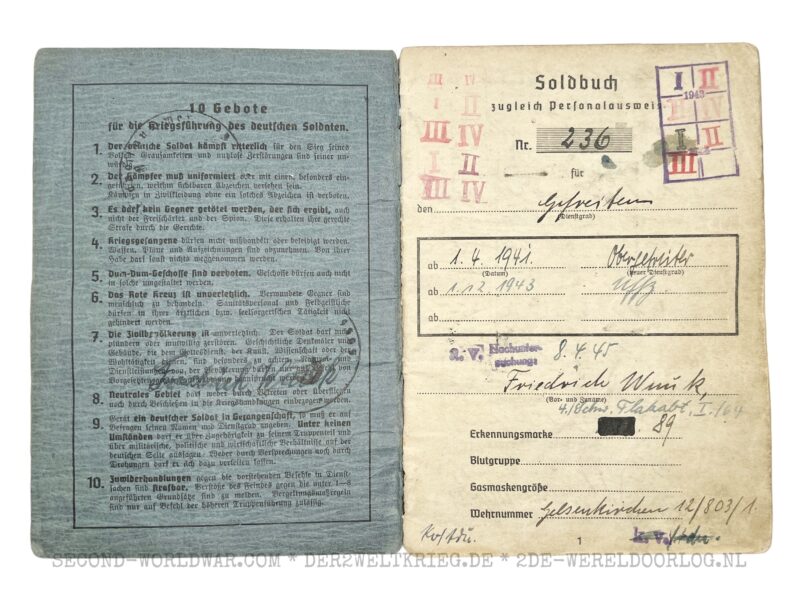 10 Gebote
für die Kriegsführung des deutschen Soldaten.
1. Der deutsche Soldat kämpft ritterlich für den Sieg seines
Volkes. Grausamkeiten und nutzlose Zerstörungen sind seiner un-
würdig.
2. Der Kämpfer muß uniformiert oder mit einem besonders ein-
geführten, weithin sichtbaren Abzeichen versehen sein.
Kämpfen in Zivilkleidung ohne ein solches Abzeichen ist verboten.
3. Es darf kein Gegner getötet werden, der sich ergibt, auch
nicht der Freischärler und der Spion. Diese erhalten ihre gerechte
Strafe durch die Gerichte.
4. Kriegsgefangene dürfen nicht mißhandelt oder beleidigt werden.
Waffen, Pläne und Aufzeichnungen sind abzunehmen. Von ihrer
Habe darf sonst nichts weggenommen werden.
5. Dum-Dum-Geschosse sind verboten. Geschosse dürfen auch nicht
in solche umgestaltet werden.
6. Das Rote Kreuz ist unverletzlich. Verwundete Gegner sind
menschlich zu behandeln. Sanitätspersonal und Feldgeistliche
dürfen in ihrer ärztlichen bzw. seelsorgerischen Tätigkeit nicht
gehindert werden.
7. Die Zivilbevölkerung ist unverletzlich. Der Soldat darf nicht
plündern oder mutwillig zerstören. Geschichtliche Denkmäler und
Gebäude, die dem Gottesdienst, der Kunst, Wissenschaft oder der
Wohltätigkeit dienen, sind besonders zu achten.
8. Neutrales Gebiet darf weder durch Betreten oder Überfliegen
noch durch Beschießen in die Kriegshandlungen einbezogen werden.
9. Gerät ein deutscher Soldat in Gefangenschaft, so muß er auf
Befragen seinen Namen und Dienstgrad angeben. Unter keinen
Umständen darf er über Zugehörigkeit zu seinem Truppenteil und
über militärische, politische und wirtschaftliche Verhältnisse auf der
deutschen Seite aussagen. Weder durch Versprechungen noch durch
Drohungen darf er sich dazu verleiten lassen.
10. Zuwiderhandlungen gegen die vorstehenden Befehle in Dienst-
sachen sind strafbar. Verstöße des Feindes gegen die unter 1–8
angeführten Grundsätze sind zu melden. Vergeltungsmaßregeln
sind nur auf Befehl der höheren Truppenführung zulässig.
Soldbuch
zugleich Personalausweis
Nr. 236
für
den Gefreiten
(Dienstgrad)
ab 1.4.1941. Obergefreiter
(Datum) (neuer Dienstgrad)
ab 1.12.1943 Uffz
ab
a.v. Nachunter-
suchung: 8.4.45
Friedrich Wnuk,
(Vor- und Zuname)
4./Schw. Flakabt. I./64
Erkennungsmarke 89
Blutgruppe
Gasmaskengröße
Wehrnummer Gelsenkirchen 12/803/1.
1
k.v.
I II
1943
III IV
I II
III
III IV
I II
III IV
I II
III IV
SECOND-WORLDWAR.COM * DER2WELTKRIEG.DE * 2DE-WERELDOORLOG.NL